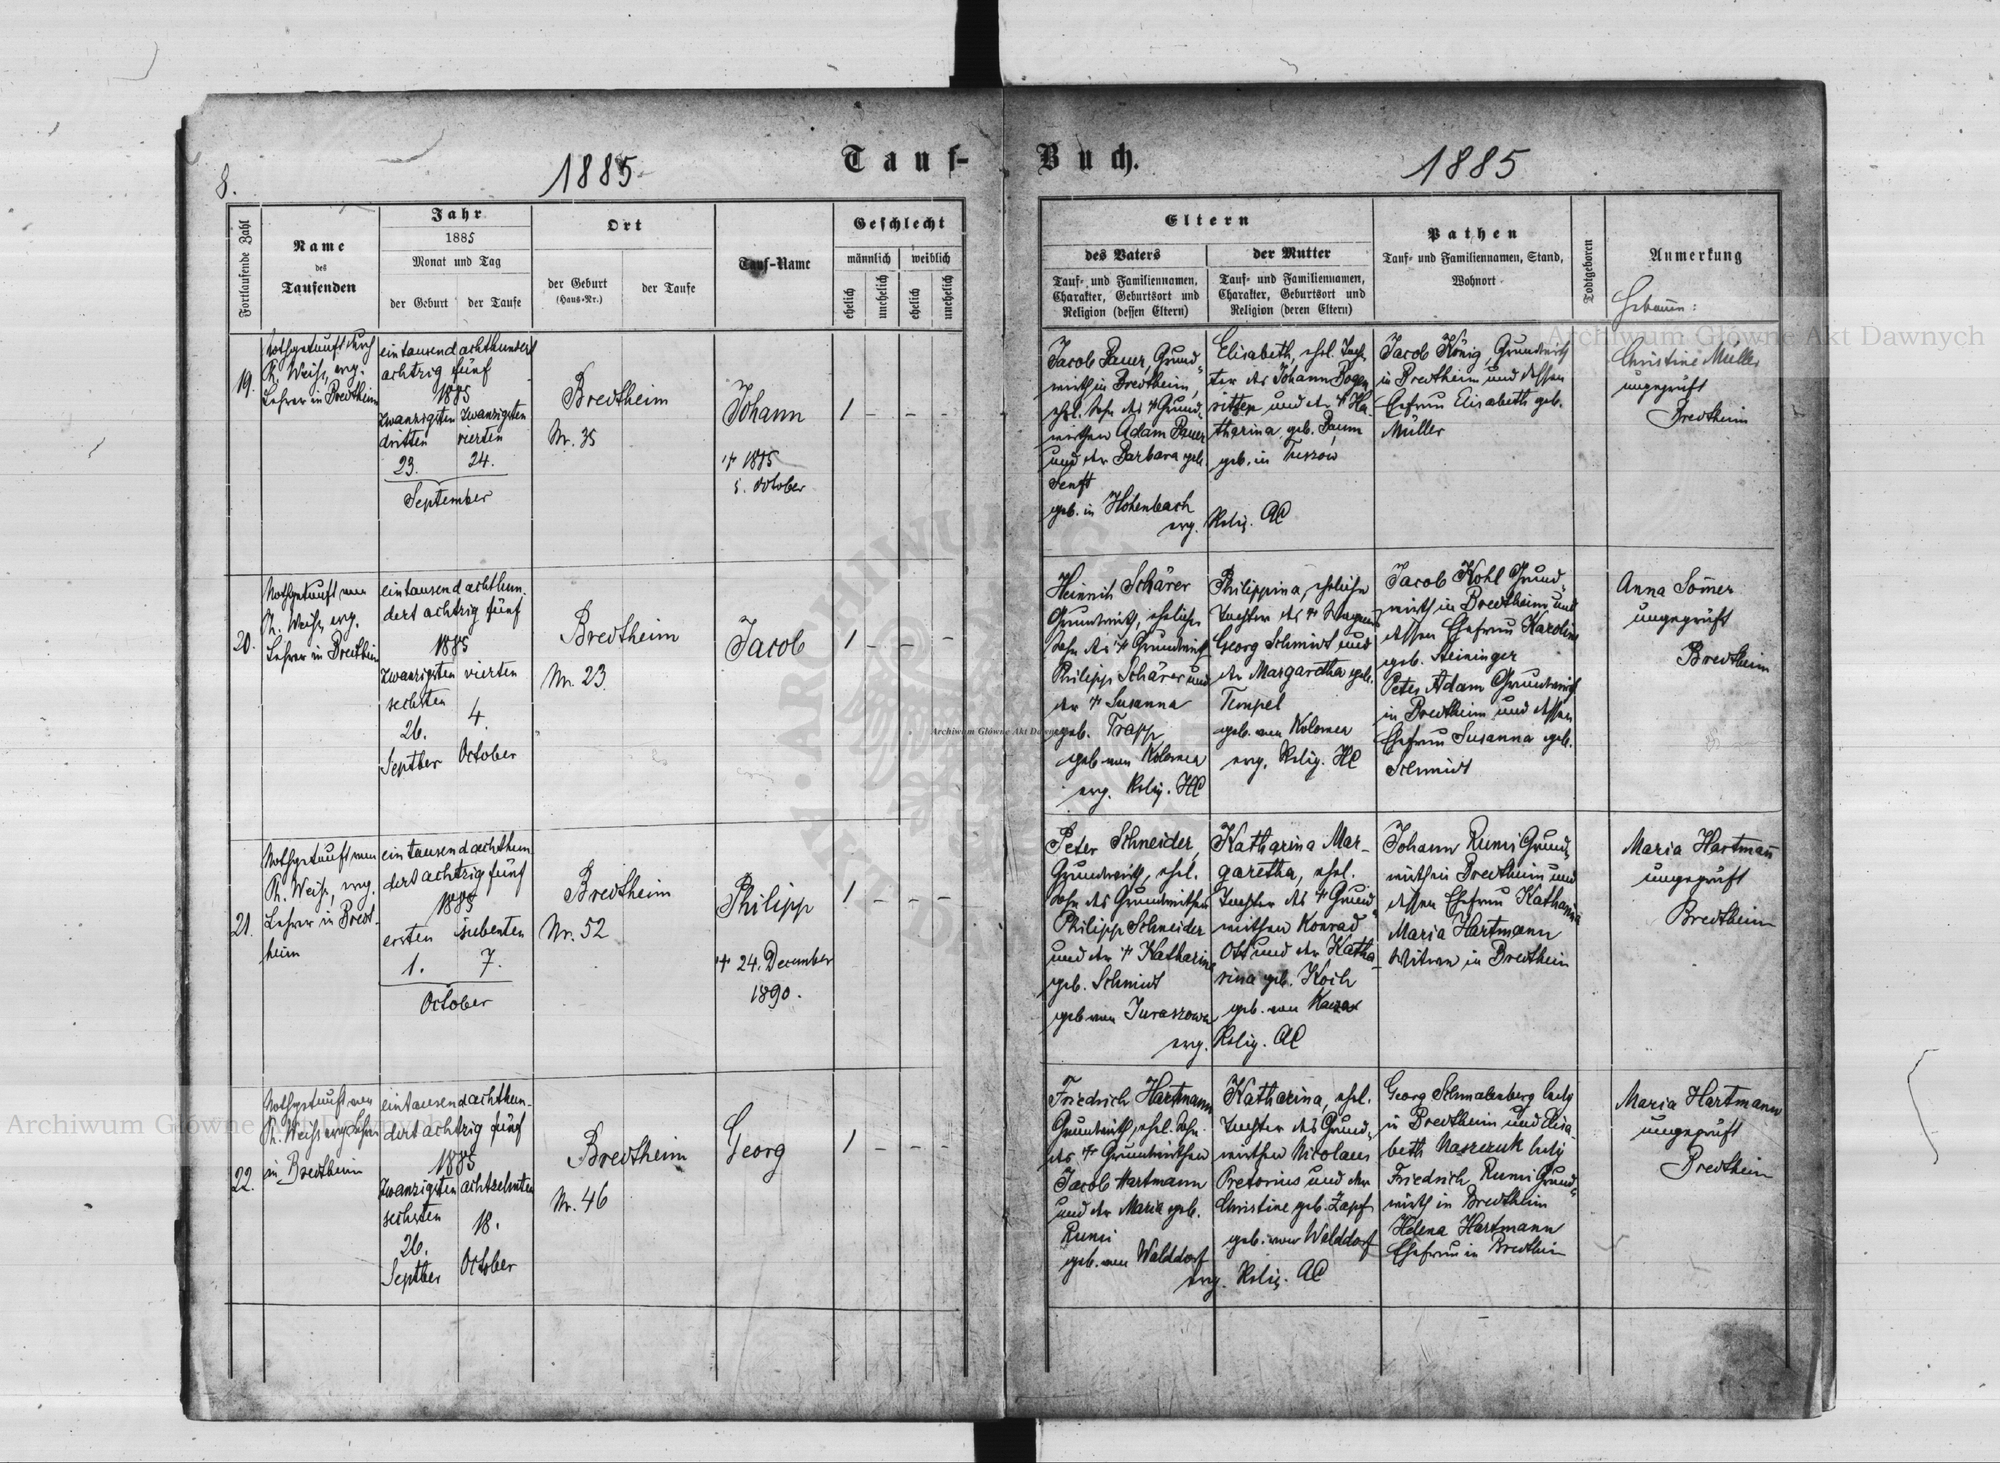 8.
1885
Tauf-
Buch.
1885
Fortlaufende Zahl
Name
des
Taufenden
Jahr
1885
Monat und Tag
der Geburt
der Taufe
Ort
der Geburt
(Haus-Nr.)
der Taufe
Tauf-Name
Geschlecht
männlich
weiblich
ehelich
unehelich
ehelich
unehelich
Eltern
des Vaters
Tauf- und Familiennamen,
Charakter, Geburtsort und
Religion (dessen Eltern)
der Mutter
Tauf- und Familiennamen,
Charakter, Geburtsort und
Religion (deren Eltern)
Pathen
Tauf- und Familiennamen, Stand,
Wohnort
Todtgeboren
Anmerkung
19.
nothgetauft durch
Ph. Weiß, evg.
Lehrer in Bredtheim
eintausendachthundert
achtzig fünf
1885
zwanzigsten zwanzigsten
dritten vierten
23. 24.
September
Bredtheim
Nr. 35
Johann
† 1885
October
1 - - -
Jacob Bauer, Grund-
wirth in Bredtheim,
ehl. Sohn des † Grund-
wirthen Adam Bauer
und der Barbara geb.
Senft
geb. in Hohenbach
evg.
Elisabeth, ehl. Toch-
ter des Johann
und der †
tharina geb.
geb. in
Relig. AC
Jacob König, Grundwirth
in Bredtheim und dessen
Ehefrau Elisabeth geb.
Müller
Christine Müller
ungeprüft
Bredtheim
20.
Nothgetauft von
Ph. Weiß, evg.
Lehrer in Bredtheim
eintausendachthun-
dert achtzig fünf
1885
zwanzigsten vierten
sechsten
26. 4.
Septber October
Bredtheim
Nr. 23.
Jacob
1 - - -
Heinrich Schärer
Grundwirth, ehelicher
Sohn des † Grundwirth
Philipp Schärer und
der † Susanna
geb. Trapp
geb. von Kolomea
evg. Relig. HC
Philippina, eheliche
Tochter des † Wagners
Georg Schmidt und
der Margaretha geb.
Tempel
geb. von Kolomea
evg. Relig. HC
Jacob Kohl Grund-
wirth in Bredtheim und
dessen Ehefrau Karoline
geb. Steininger
Peter Adam Grundwirth
in Bredtheim und dessen
Ehefrau Susanna geb.
Schmidt
Anna Somer
ungeprüft
Bredtheim
21.
Nothgetauft von
Ph. Weiß, evg.
Lehrer in Bredt-
heim
eintausendachthun-
dert achtzig fünf
1885
ersten siebenten
1. 7.
October
Bredtheim
Nr. 52
Philipp
† 24. December
1890.
1 - - -
Peter Schneider,
Grundwirth, ehl.
Sohn des Grundwirthen
Philipp Schneider
und der † Katharina
geb. Schmidt
geb von
evg.
Katharina Mar-
garetha, ehl.
Tochter des † Grund-
wirthen Konrad
Ott und der Katha-
rina geb. Koch
geb. von
Relig. AC
Johann Rumi Grund-
wirth in Bredtheim und
dessen Ehefrau Katharina
Maria Hartmann
Witwe in Bredtheim
Maria Hartmañ
ungeprüft
Bredtheim
22.
Nothgetauft von
Ph. Weiß evg Lehrer
in Bredtheim
eintausendachthun-
dert achtzig fünf
1885
zwanzigsten achtzehnten
sechsten
26. 18.
Septber October
Bredtheim
Nr. 46
Georg
1 - - -
Friedrich Hartmann
Grundwirth, ehl. Sohn
des † Grundwirthen
Jacob Hartmann
und der Maria geb.
Rumi
geb. von Walddorf
evg.
Katharina, ehl.
Tochter des Grund-
wirthen Nicolaus
Pretorius und der
Christine geb. Zapf
geb. von Walddorf
Relig. AC
Georg Schmalenberg ledig
in Bredtheim und Elisa-
beth ledig
Friedrich Rumi Grund-
wirth in Bredtheim
Helena Hartmann
Ehefrau in Bredtheim
Maria Hartmann
ungeprüft
Bredtheim
Archiwum Główne Akt Dawnych
Archiwum Główne Akt Dawnych
Archiwum Główne Akt Dawnych